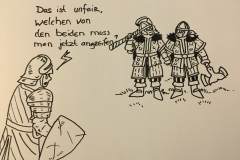 Das ist unfair,
welchen von
den beiden muss
man jetzt angreifen?